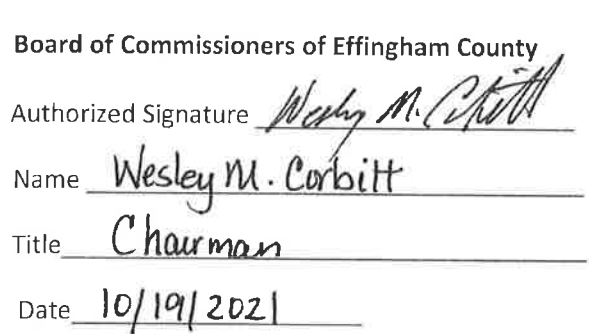 Board of Commissioners of Effingham County
Authorized Signature Wesley M. Corbitt
Name Wesley M. Corbitt
Title Chairman
Date 10/19/2021